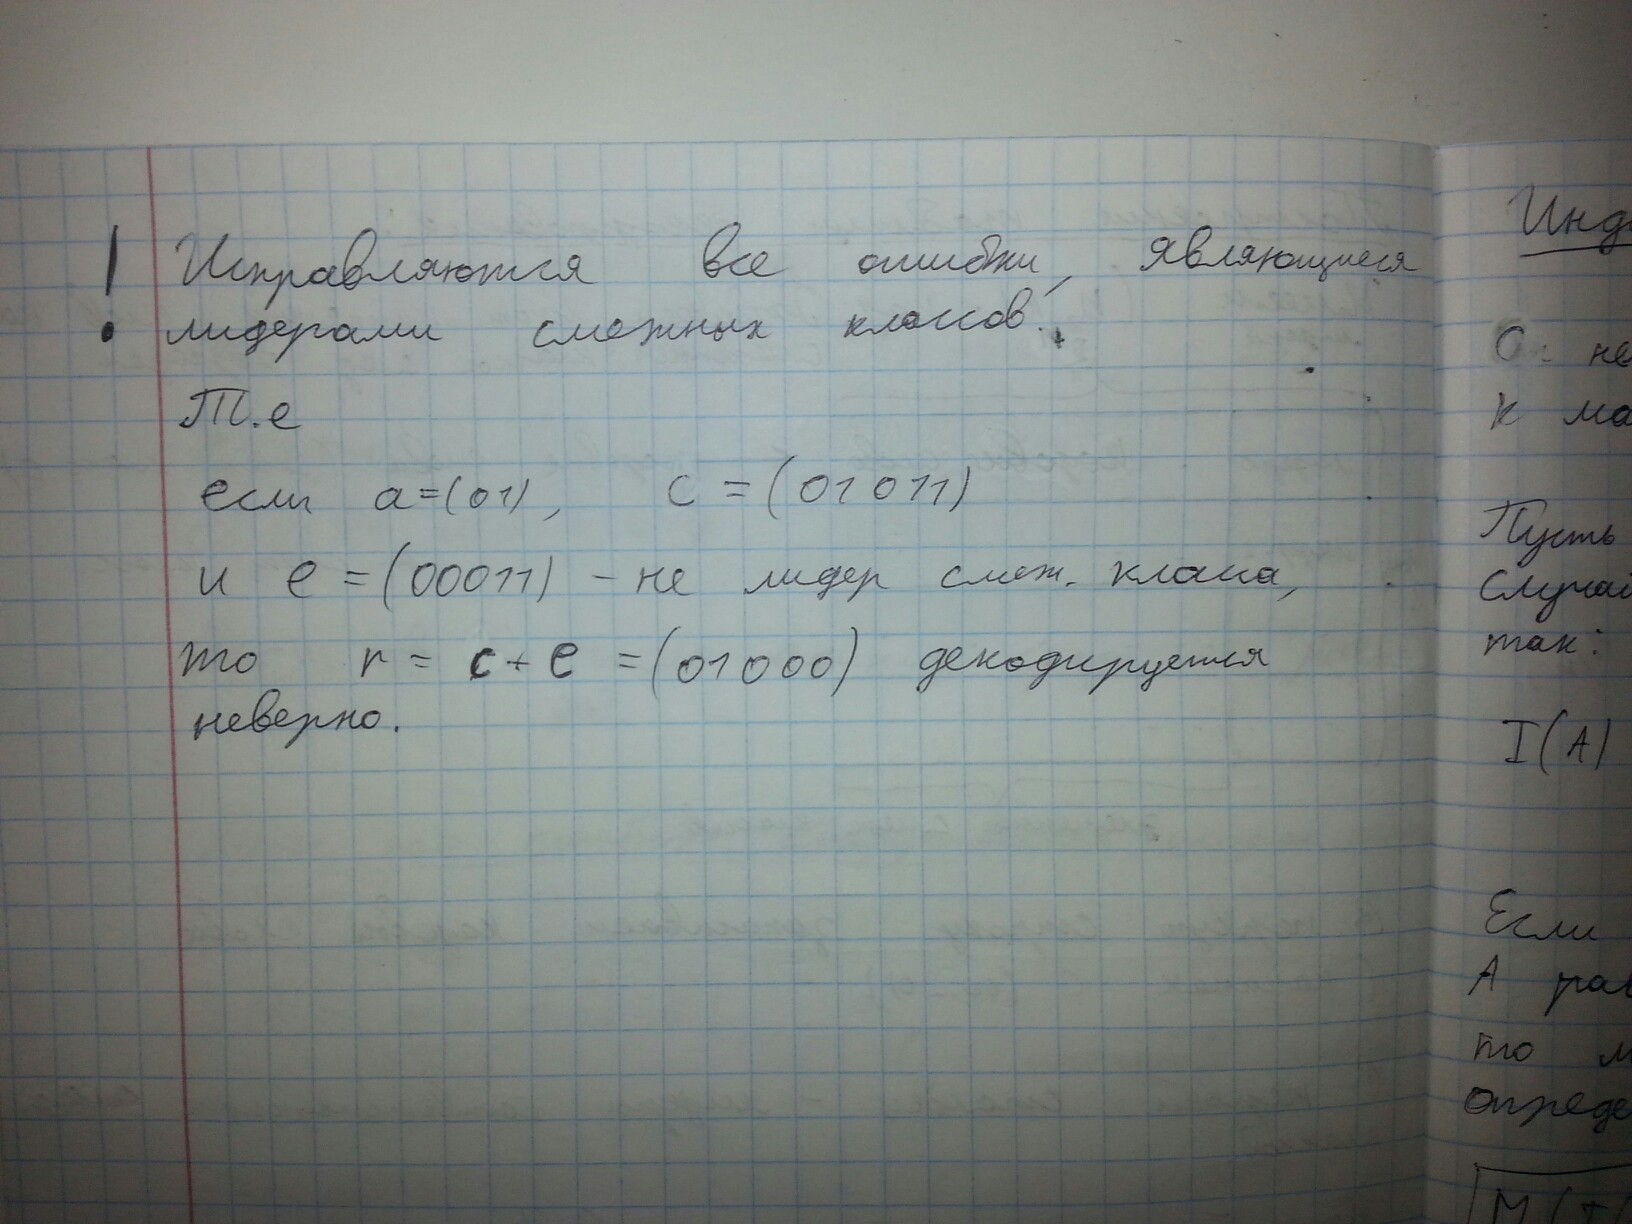 ! Исправляются все ошибки, являющиеся
лидерами смежных классов.
Т.е
если a=(01), c = (01011)
и e = (00011) - не лидер смеж. класса,
то r = c + e = (01000) декодируется
неверно.
Инд
О - не
к ма
Пусть
Случай
так:
I(A)
Если
A рав
то м
опреде